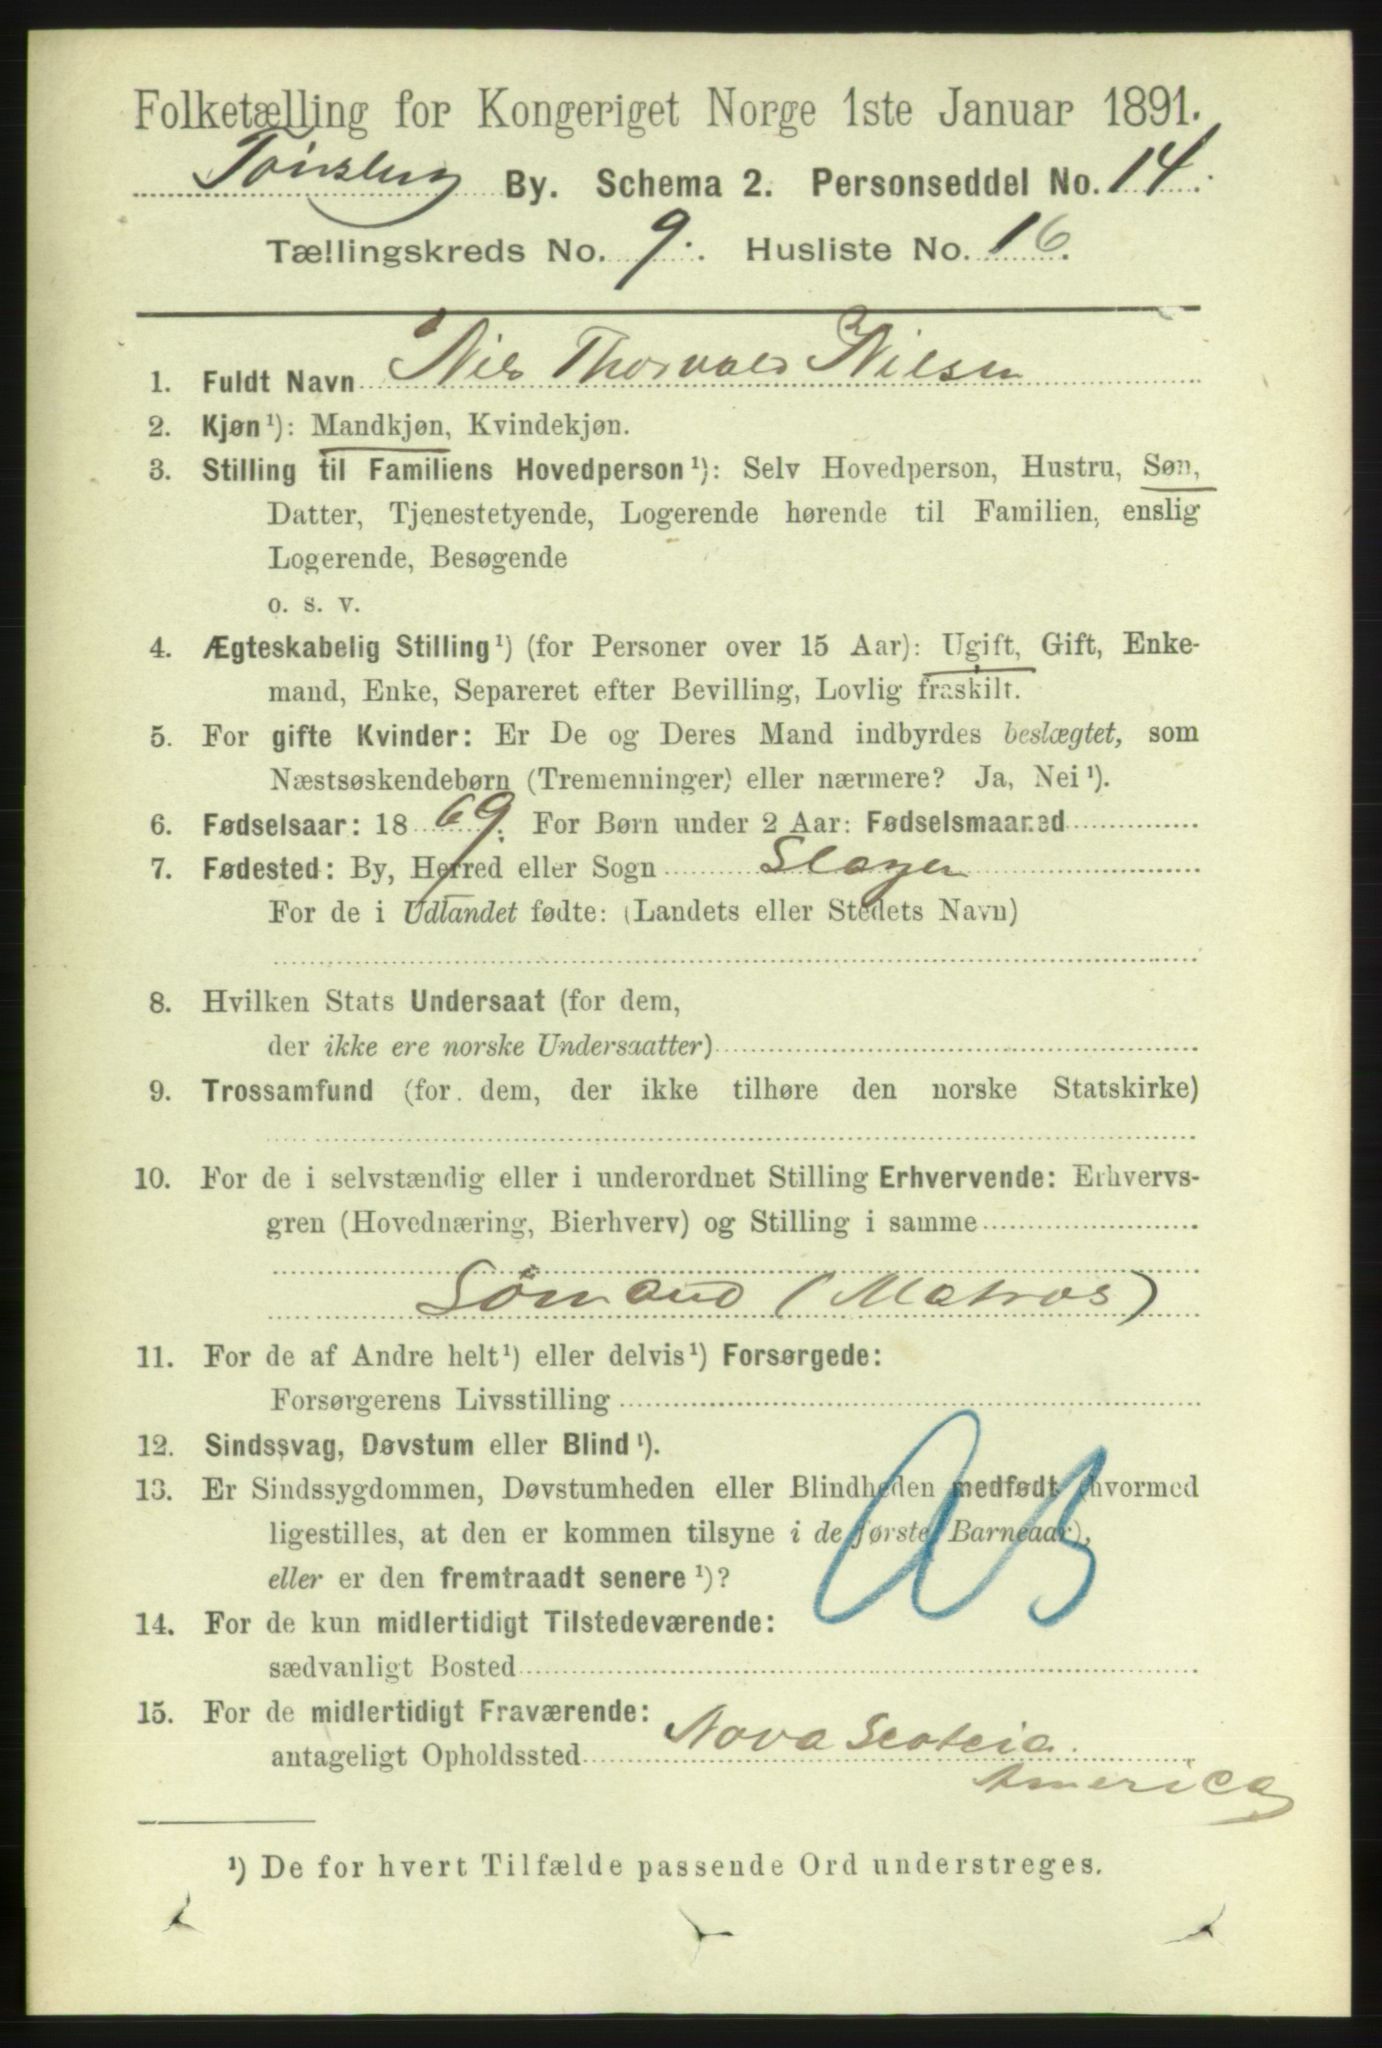 Folketælling for Kongeriget Norge 1ste Januar 1891.
Tönsberg By. Schema 2. Personseddel No. 14.
Tællingskreds No. 9. Husliste No. 16.
1. Fuldt Navn Nils Thorvald Nilsen
2. Kjøn¹): Mandkjøn, Kvindekjøn.
3. Stilling til Familiens Hovedperson¹): Selv Hovedperson, Hustru, Søn,
Datter, Tjenestetyende, Logerende hørende til Familien, enslig
Logerende, Besøgende
o. s. v.
4. Ægteskabelig Stilling¹) (for Personer over 15 Aar): Ugift, Gift, Enke-
mand, Enke, Separeret efter Bevilling, Lovlig fraskilt.
5. For gifte Kvinder: Er De og Deres Mand indbyrdes beslægtet, som
Næstsøskendebørn (Tremenninger) eller nærmere? Ja, Nei¹).
6. Fødselsaar: 1869. For Børn under 2 Aar: Fødselsmaaned
7. Fødested: By, Herred eller Sogn Slagen
For de i Udlandet fødte: (Landets eller Stedets Navn)
8. Hvilken Stats Undersaat (for dem,
der ikke ere norske Undersaatter)
9. Trossamfund (for dem, der ikke tilhøre den norske Statskirke)
10. For de i selvstændig eller i underordnet Stilling Erhvervende: Erhvervs-
gren (Hovednæring, Bierhverv) og Stilling i samme
Sömand (Matros)
11. For de af Andre helt¹) eller delvis¹) Forsørgede:
Forsørgerens Livsstilling
12. Sindssvag, Døvstum eller Blind¹).
13. Er Sindssygdommen, Døvstumheden eller Blindheden medfødt (hvormed
ligestilles, at den er kommen tilsyne i de første Barneaar),
eller er den fremtraadt senere¹)?
14. For de kun midlertidigt Tilstedeværende:
sædvanligt Bosted
15. For de midlertidigt Fraværende:
antageligt Opholdssted Nova Scoteia.
America
¹) De for hvert Tilfælde passende Ord understreges.